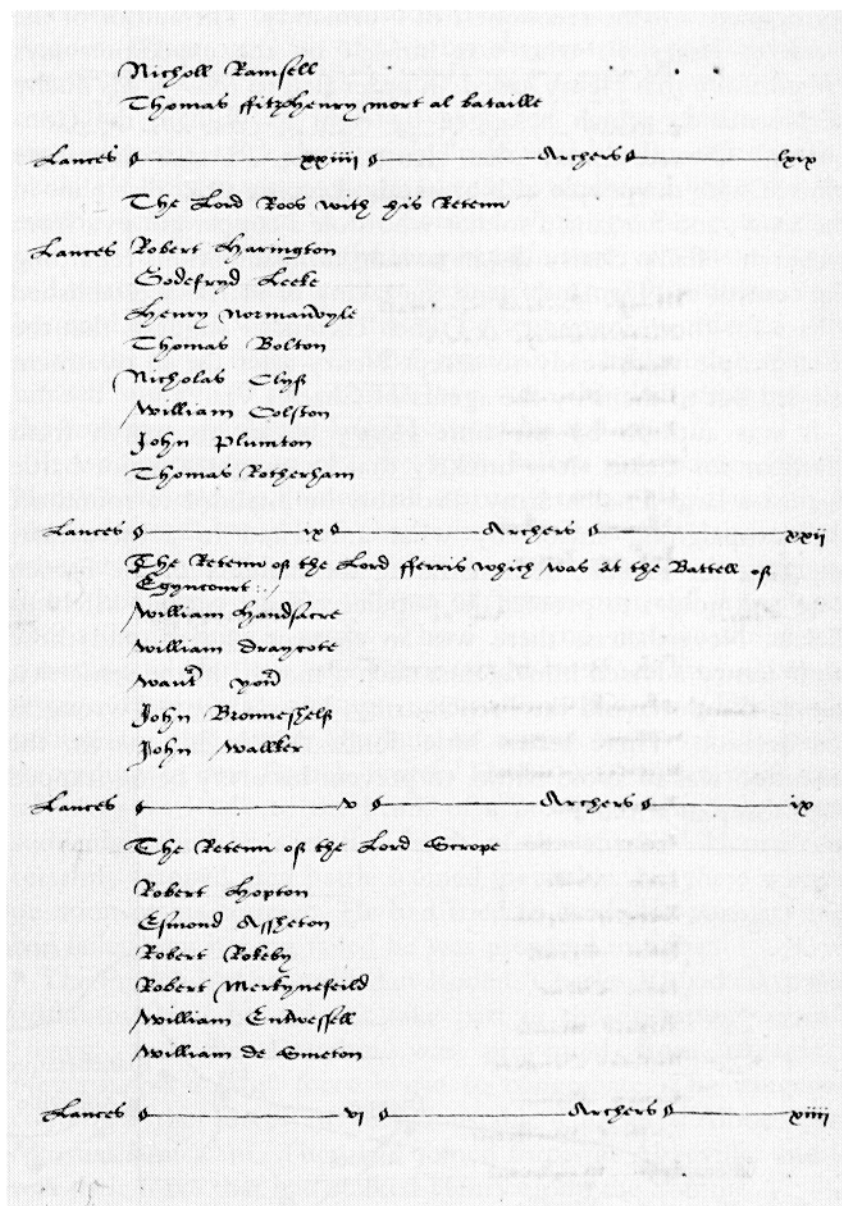 Nicholl Ramsell
Thomas ffitzHenry mort al bataille
Lances xxiiii Archers lxix
The Lord Roos with his Retenu
Lances Robert Harington
Godefryd Leeke
Henry Normanvyle
Thomas Bolton
Nicholas Clyff
William Colston
John Plumton
Thomas Rotherham
Lances ix Archers xxii
The Retenu of the Lord fferris which was at the Battell of
Egyncourt:
William Handsacre
William Draycote
John Bromeshelf
John Wallker
Lances v Archers ix
The Retenu of the Lord Scrope
Robert Hopton
Esmond Assheton
Robert Rokeby
Robert Merkynfeild
William Entwessell
William de Smeton
Lances vi Archers xiiii